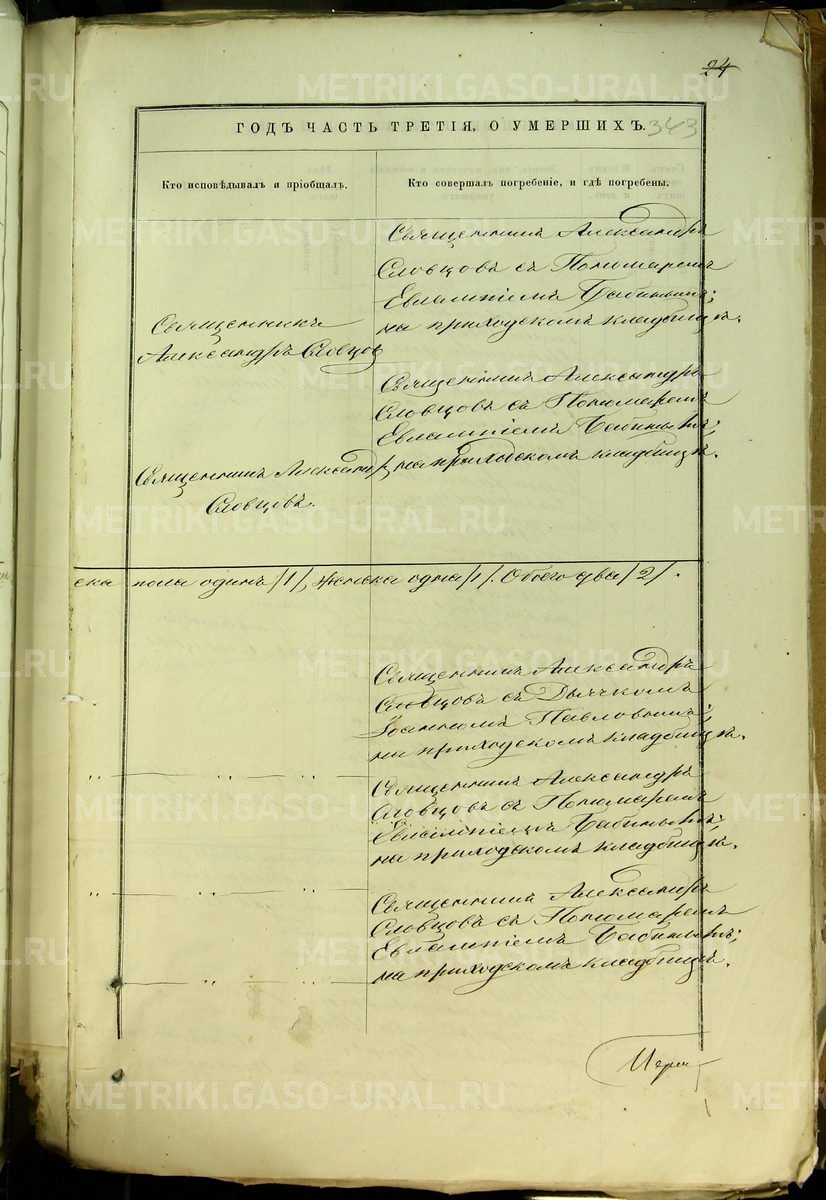 24
ГОДЪ ЧАСТЬ ТРЕТІЯ, О УМЕРШИХЪ.
343
Кто исповѣдывалъ и пріобщалъ.
Кто совершалъ погребеніе, и гдѣ погребены.
Священникъ Александръ
Словцовъ съ Пономаремъ
Евлампіемъ Бабинымъ;
на приходскомъ кладбищѣ.
Священникъ
Александръ Словцов
Священникъ Александръ
Словцовъ съ Пономаремъ
Евлампіемъ Бабинымъ;
на приходскомъ кладбищѣ.
Священникъ Александръ
Словцовъ.
ска пола одинъ /1/, женска одна /1/. Обоего два /2/.
Священникъ Александръ
Словцовъ съ Дьячкомъ
Іоанномъ Павловымъ;
на приходскомъ кладбищѣ.
Священникъ Александръ
Словцовъ съ Пономаремъ
Евлампіемъ Бабинымъ;
на приходскомъ кладбищѣ.
Священникъ Александръ
Словцовъ съ Пономаремъ
Евлампіемъ Бабинымъ;
на приходскомъ кладбищѣ.
METRIKI.GASO-URAL.RU